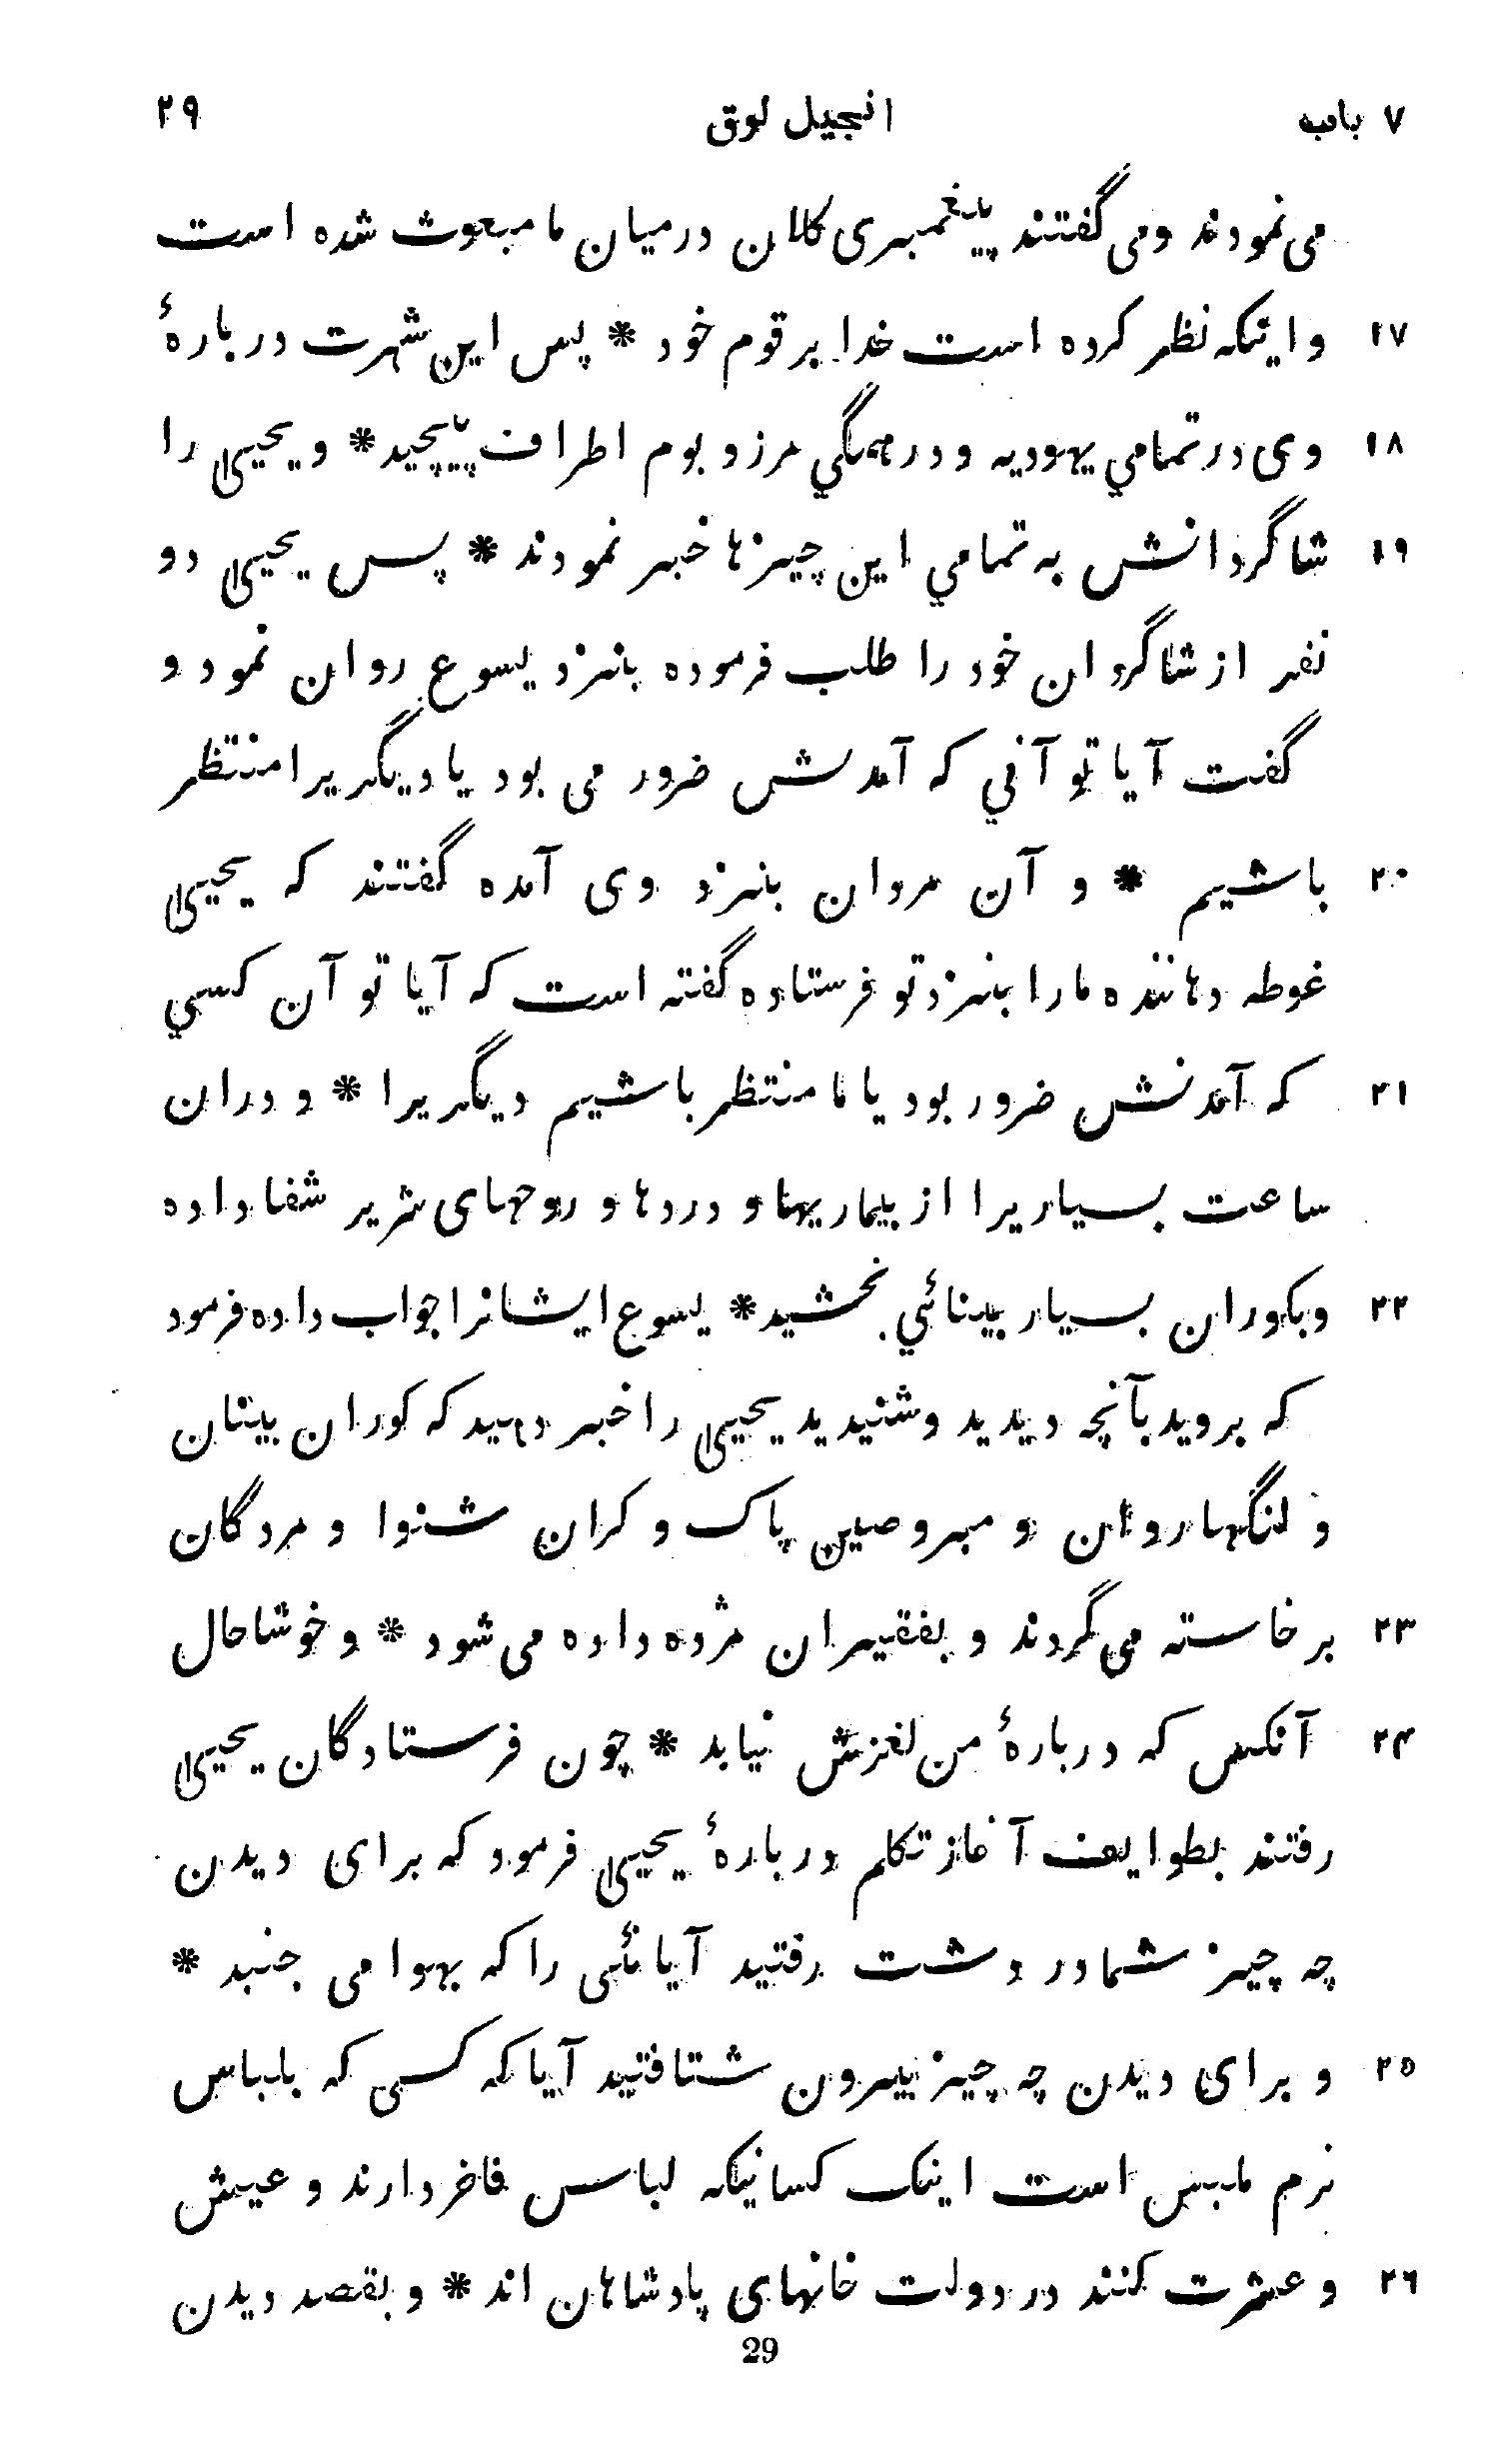 ۷ باب انجیل لوق ۲۹
می نمودند ومی گفتند پیغمبری کلان درمیان ما مبعوث شده است
۱۷ و اینکه نظر کرده است خدا بر قوم خود * پس این شهرت دربارهٔ
۱۸ وی در تمامي یهودیه و در همگي مرز و بوم اطراف پیچید * و یحییٰ را
۱۹ شاگردانش به تمامي این چیزها خبر نمودند * پس یحییٰ دو
نفر از شاگردان خود را طلب فرموده بنزد یسوع روان نمود و
گفت آیا تو آني که آمدش ضرور می بود یا دیگریرا منتظر
۲۰ باشیم * و آن مردان بنزد وی آمده گفتند که یحییٰ
غوطه دهاننده ما را بنزد تو فرستاده گفته است که آیا تو آن کسي
۲۱ که آمدنش ضرور بود یا ما منتظر باشیم دیگریرا * و دران
ساعت بسیاریرا از بیماریها و دردها و روحهای شریر شفا داده
۲۲ وبکوران بسیار بینائي بخشید * یسوع ایشانرا جواب داده فرمود
که بروید بآنچه دیدید وشنیدید یحییٰ را خبر دهید که کوران بینان
و لنگها روان و مبروصین پاک و کران شنوا و مردگان
۲۳ برخاسته می گردند و بفقیران مژده داده می شود * و خوشاحال
۲۴ آنکس که دربارهٔ من لغزش نیابد * چون فرستادگان یحییٰ
رفتند بطوایف آغاز تکلم دربارهٔ یحییٰ فرمود که برای دیدن
چه چیز شما در دشت رفتید آیا نئی را که بهوا می جنبد *
۲۵ و برای دیدن چه چیز بیرون شتافتید آیا که کسی که بلباس
نرم ملبس است اینک کسانیکه لباس فاخر دارند و عیش
۲۶ و عشرت کنند در دولت خانهای پادشاهان اند * و بقصد دیدن
29